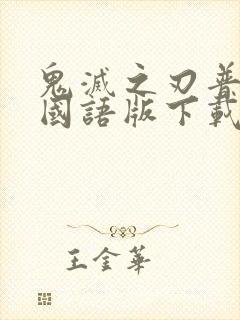 鬼滅之刃普
國語版下載
王金華